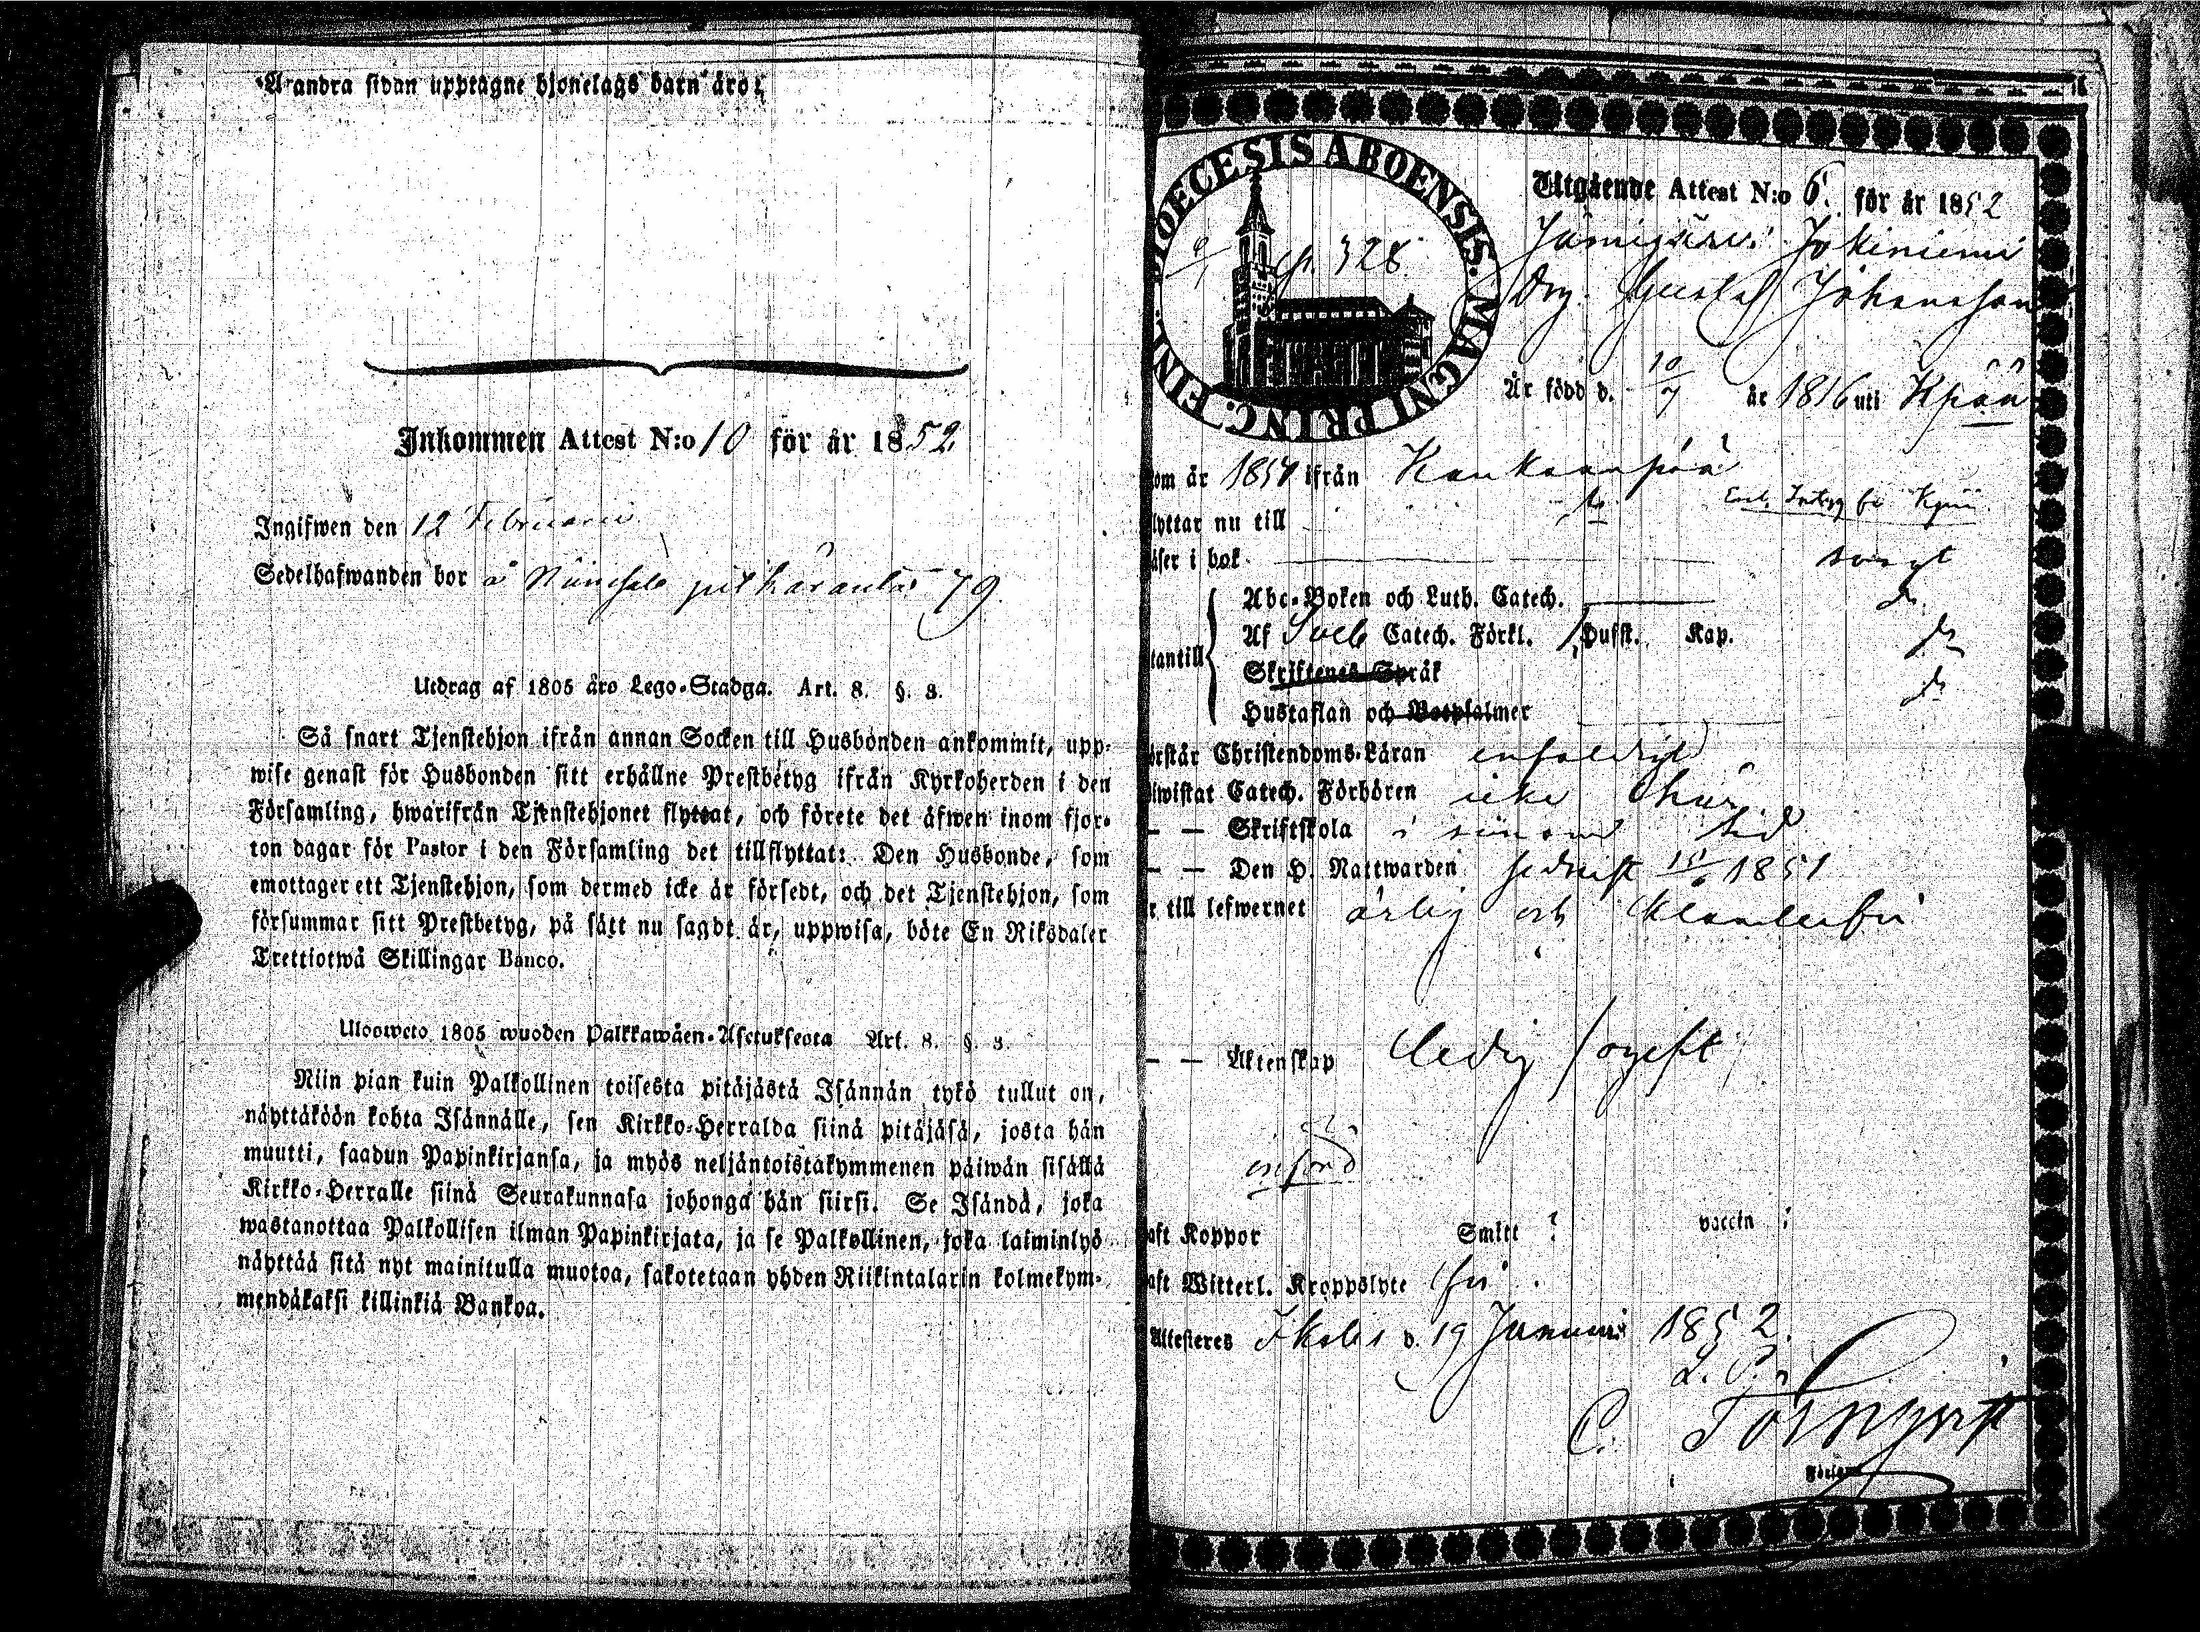 Å andra sidan upptagne hjonelags barn äro:
Inkommen Attest N:o 10 för år 1852
Ingifwen den 12 Februari
Sedelhafwanden bor å 79
Utdrag af 1805 års Lego-Stadga. Art. 8. §. 3.
Så snart Tjenstehjon ifrån annan Socken till Husbonden ankommit, upp-
wise genast för Husbonden sitt erhållne Prestbetyg ifrån Kyrkoherden i den
Församling, hwarifrån Tjenstehjonet flyttat, och förete det äfwen inom fjor-
ton dagar för Pastor i den Församling det tillflyttat: Den Husbonde, som
emottager ett Tjenstehjon, som dermed icke är försedt, och det Tjenstehjon, som
försummar sitt Prestbetyg, på sätt nu sagdt är, uppwisa, böte En Riksdaler
Trettiotwå Skillingar Banco.
Uloswеto 1805 wuoden Palkkawäen-Asetuksesta Art. 8. §. 3.
Niin pian kuin Palkollinen toisesta pitäjästä Isännän tykö tullut on,
näyttäköön kohta Isännälle, sen Kirkko-Herralda siinä pitäjäsä, josta hän
muutti, saadun Papinkirjansa, ja myös neljäntoistakymmenen päiwän sisällä
Kirkko-Herralle siinä Seurakunnasa johonga hän siirsi. Se Isändä, joka
wastanottaa Palkollisen ilman Papinkirjata, ja se Palkollinen, joka laiminlyö
näyttää sitä nyt mainitulla muotoa, sakotetaan yhden Riikintalarin kolmekym-
mendäkaksi killinkiä Bankoa.
DIOECESIS ABOENSIS. MAGNI PRINC. FINL.
328
Utgående Attest N:o 6. för år 1852
Jämijärvi Jokiniemi
Drg. Gustaf Johansson
Är född d. 10/7 år 1816 uti Kpää
kom år 1850 ifrån Kankaanpää
lyttar nu till
äser i bok svagt
Abc-Boken och Luth. Catech. do
tantill Af Sveb Catech. Förkl. Hufst. Kap. do
Skriftenes Språk
Hustaflan och Botpsalmer do
örstår Christendoms-Läran enfaldigt
iwistat Catech. Förhören icke här
— — Skriftskola i sinom tid
— — Den H. Nattwarden sednast 1851
r till lefwernet ärlig och klanderfri
— — Äktenskap ledig / ogift
införd
aft Koppor Smitt ? vaccin ?
aft Witterl. Kroppslyte fri
Attesteres Ikalis d. 19 Januari 1852.
C. Tornqvist